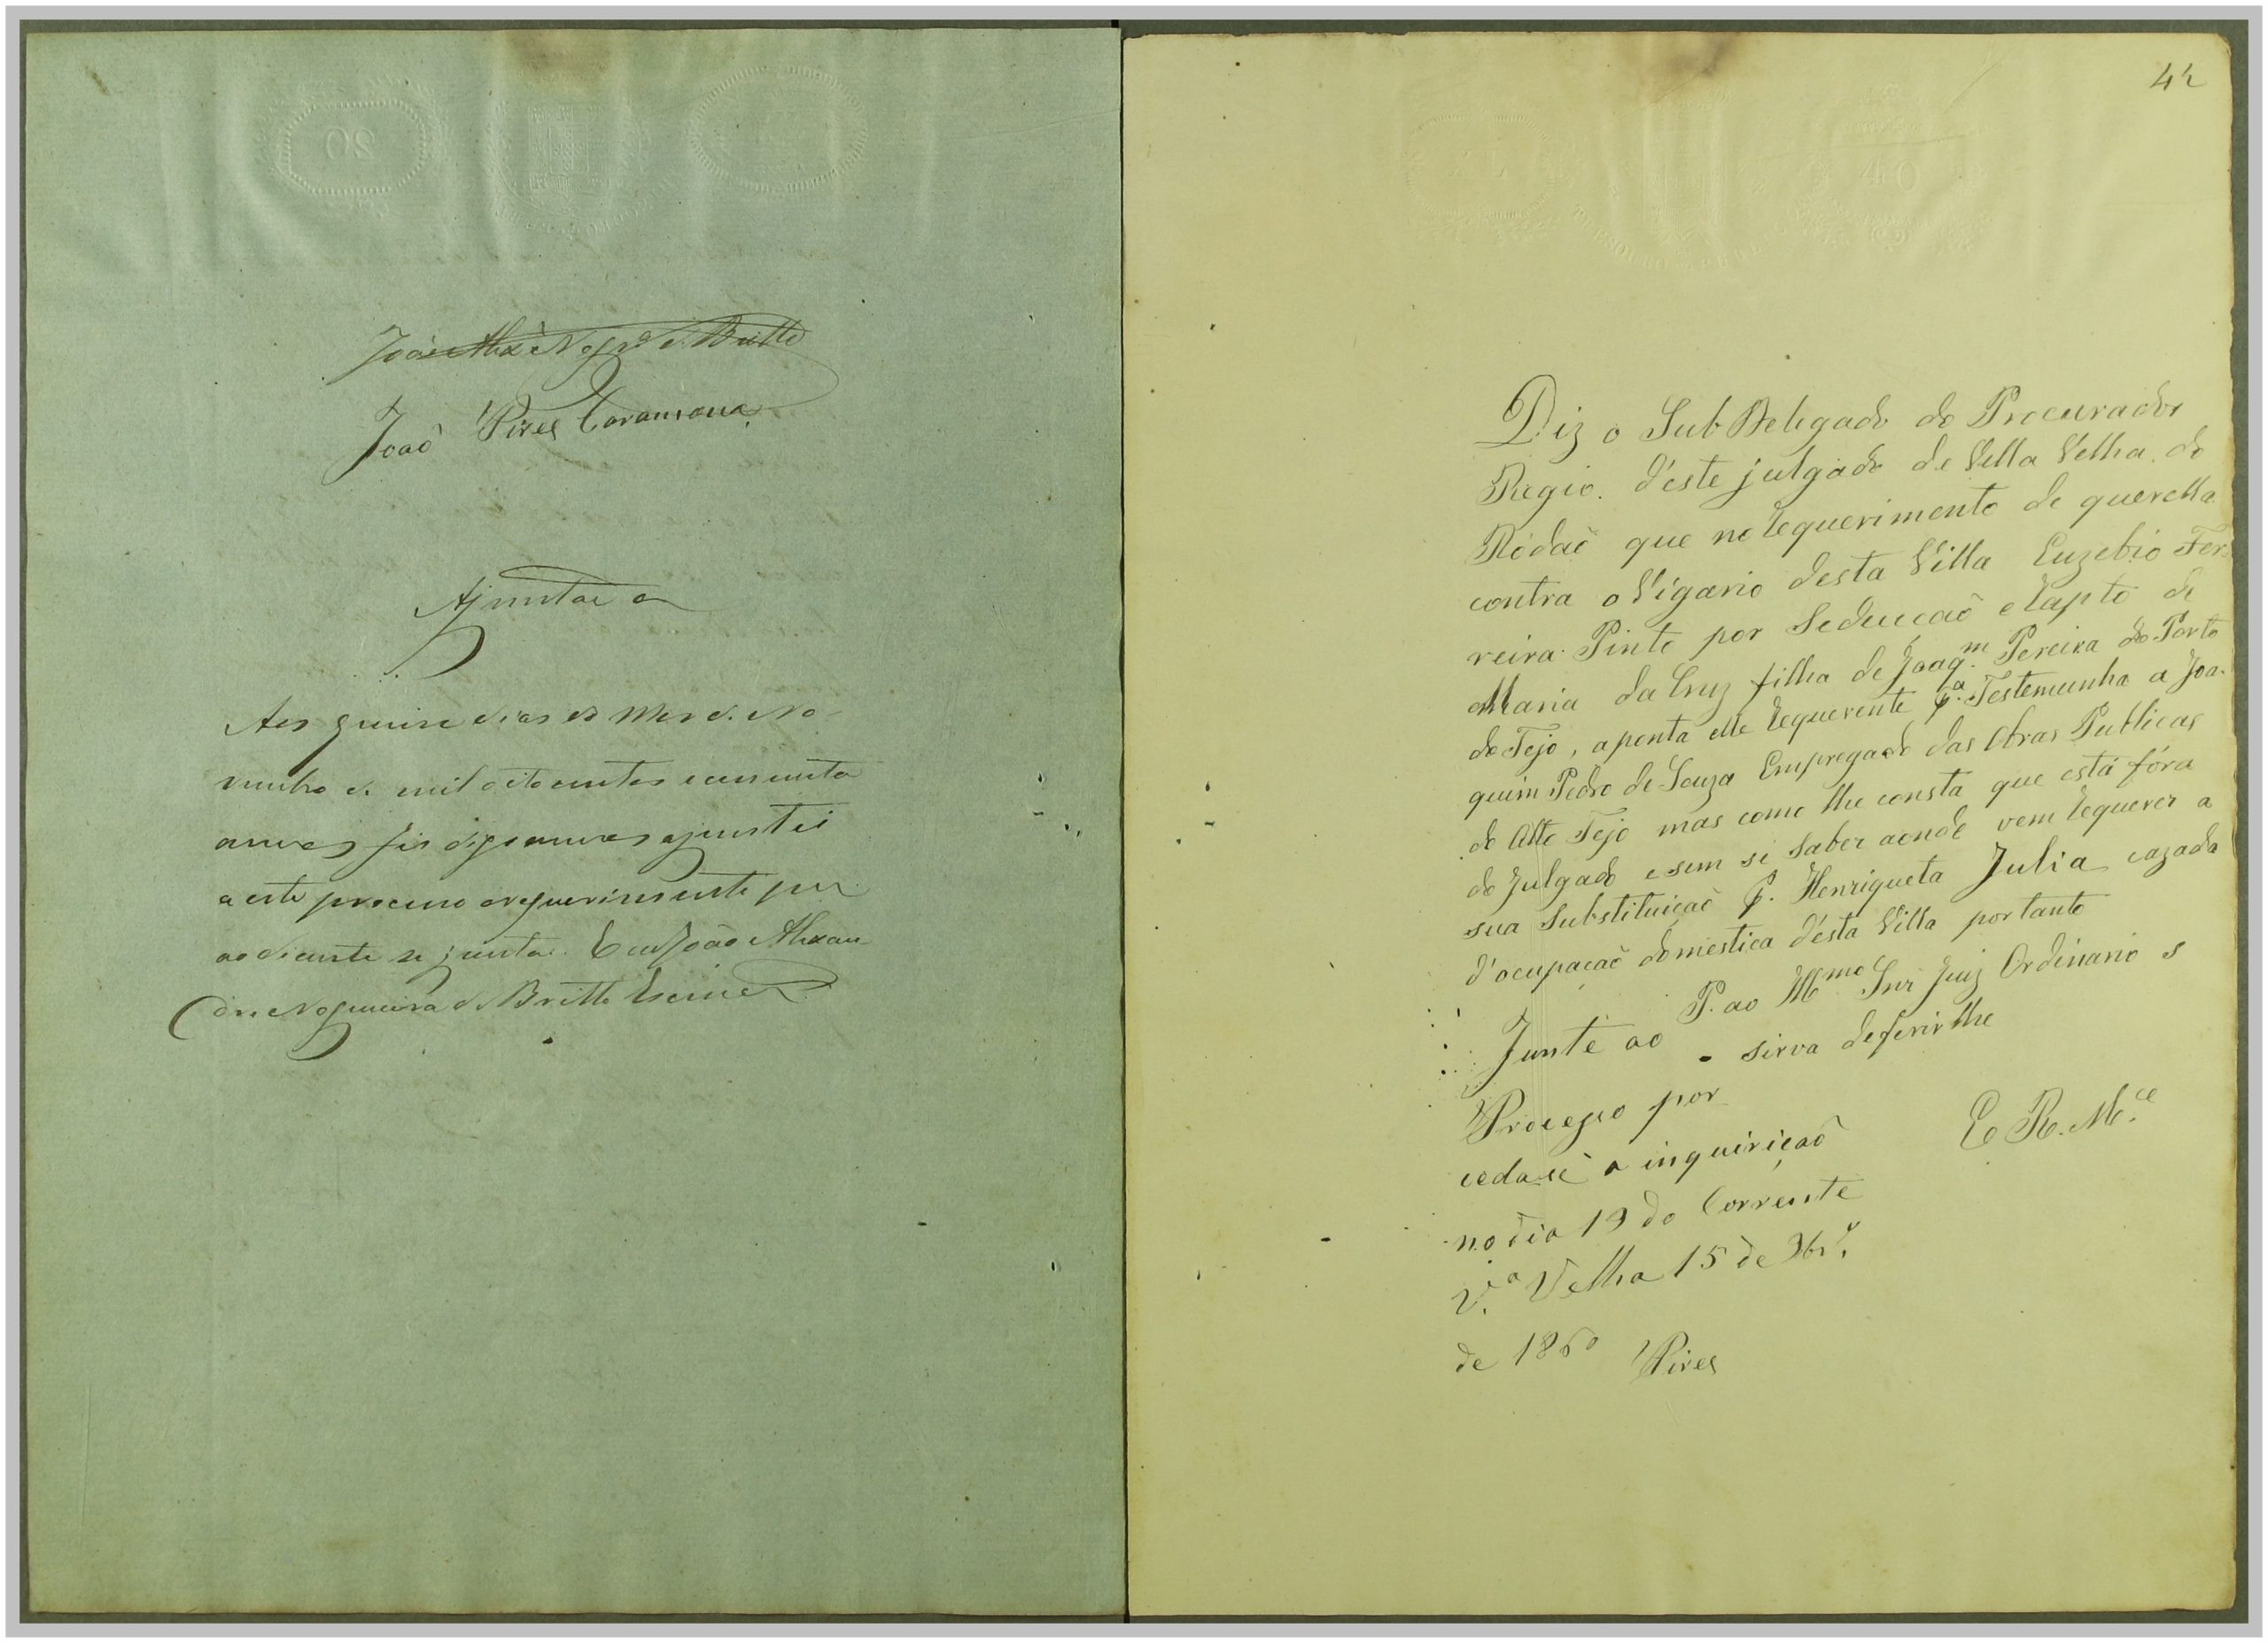 João Alex.e Nog.ra de Britto
João Pires Caramona
Ajuntada
Aos quinze dias do Mes de No-
vembro de mil oito centos e secenta
annos fis digo annos ajuntei
a este processo o requerimento que
ao diante se junta. Eu João Alexan
dre Nogueira de Britto Escrivão
42
Diz o Sub Delegado do Procurador
Regio d'este julgado de Villa Velha do
Ródaõ que no requerimento de querella
contra o Vigario desta Villa Euzebio Fer-
reira Pinto por Seducçaõ e rapto de
Maria da Cruz filha de Joaq.m Pereira do Porto
do Tejo, aponta elle requerente p.a Testemunha a Joa-
quim Pedro de Souza Empregado das Obras Publicas
do Alto Tejo mas como lhe consta que está fóra
do Julgado e sem se saber aonde vem requerer a
sua Substituiçaõ p. Henriqueta Julia cazada
d'ocupaçaõ domestica d'esta Villa portanto
P. ao Ill.mo Snr Juiz Ordinario s
sirva deferir lhe
E R. M.ce
Junte ao
Processo por
cedase a inquiriçaõ
no dia 19 do Corrente
V.a Velha 15 de 9br.o
de 1860 Pires
20
40